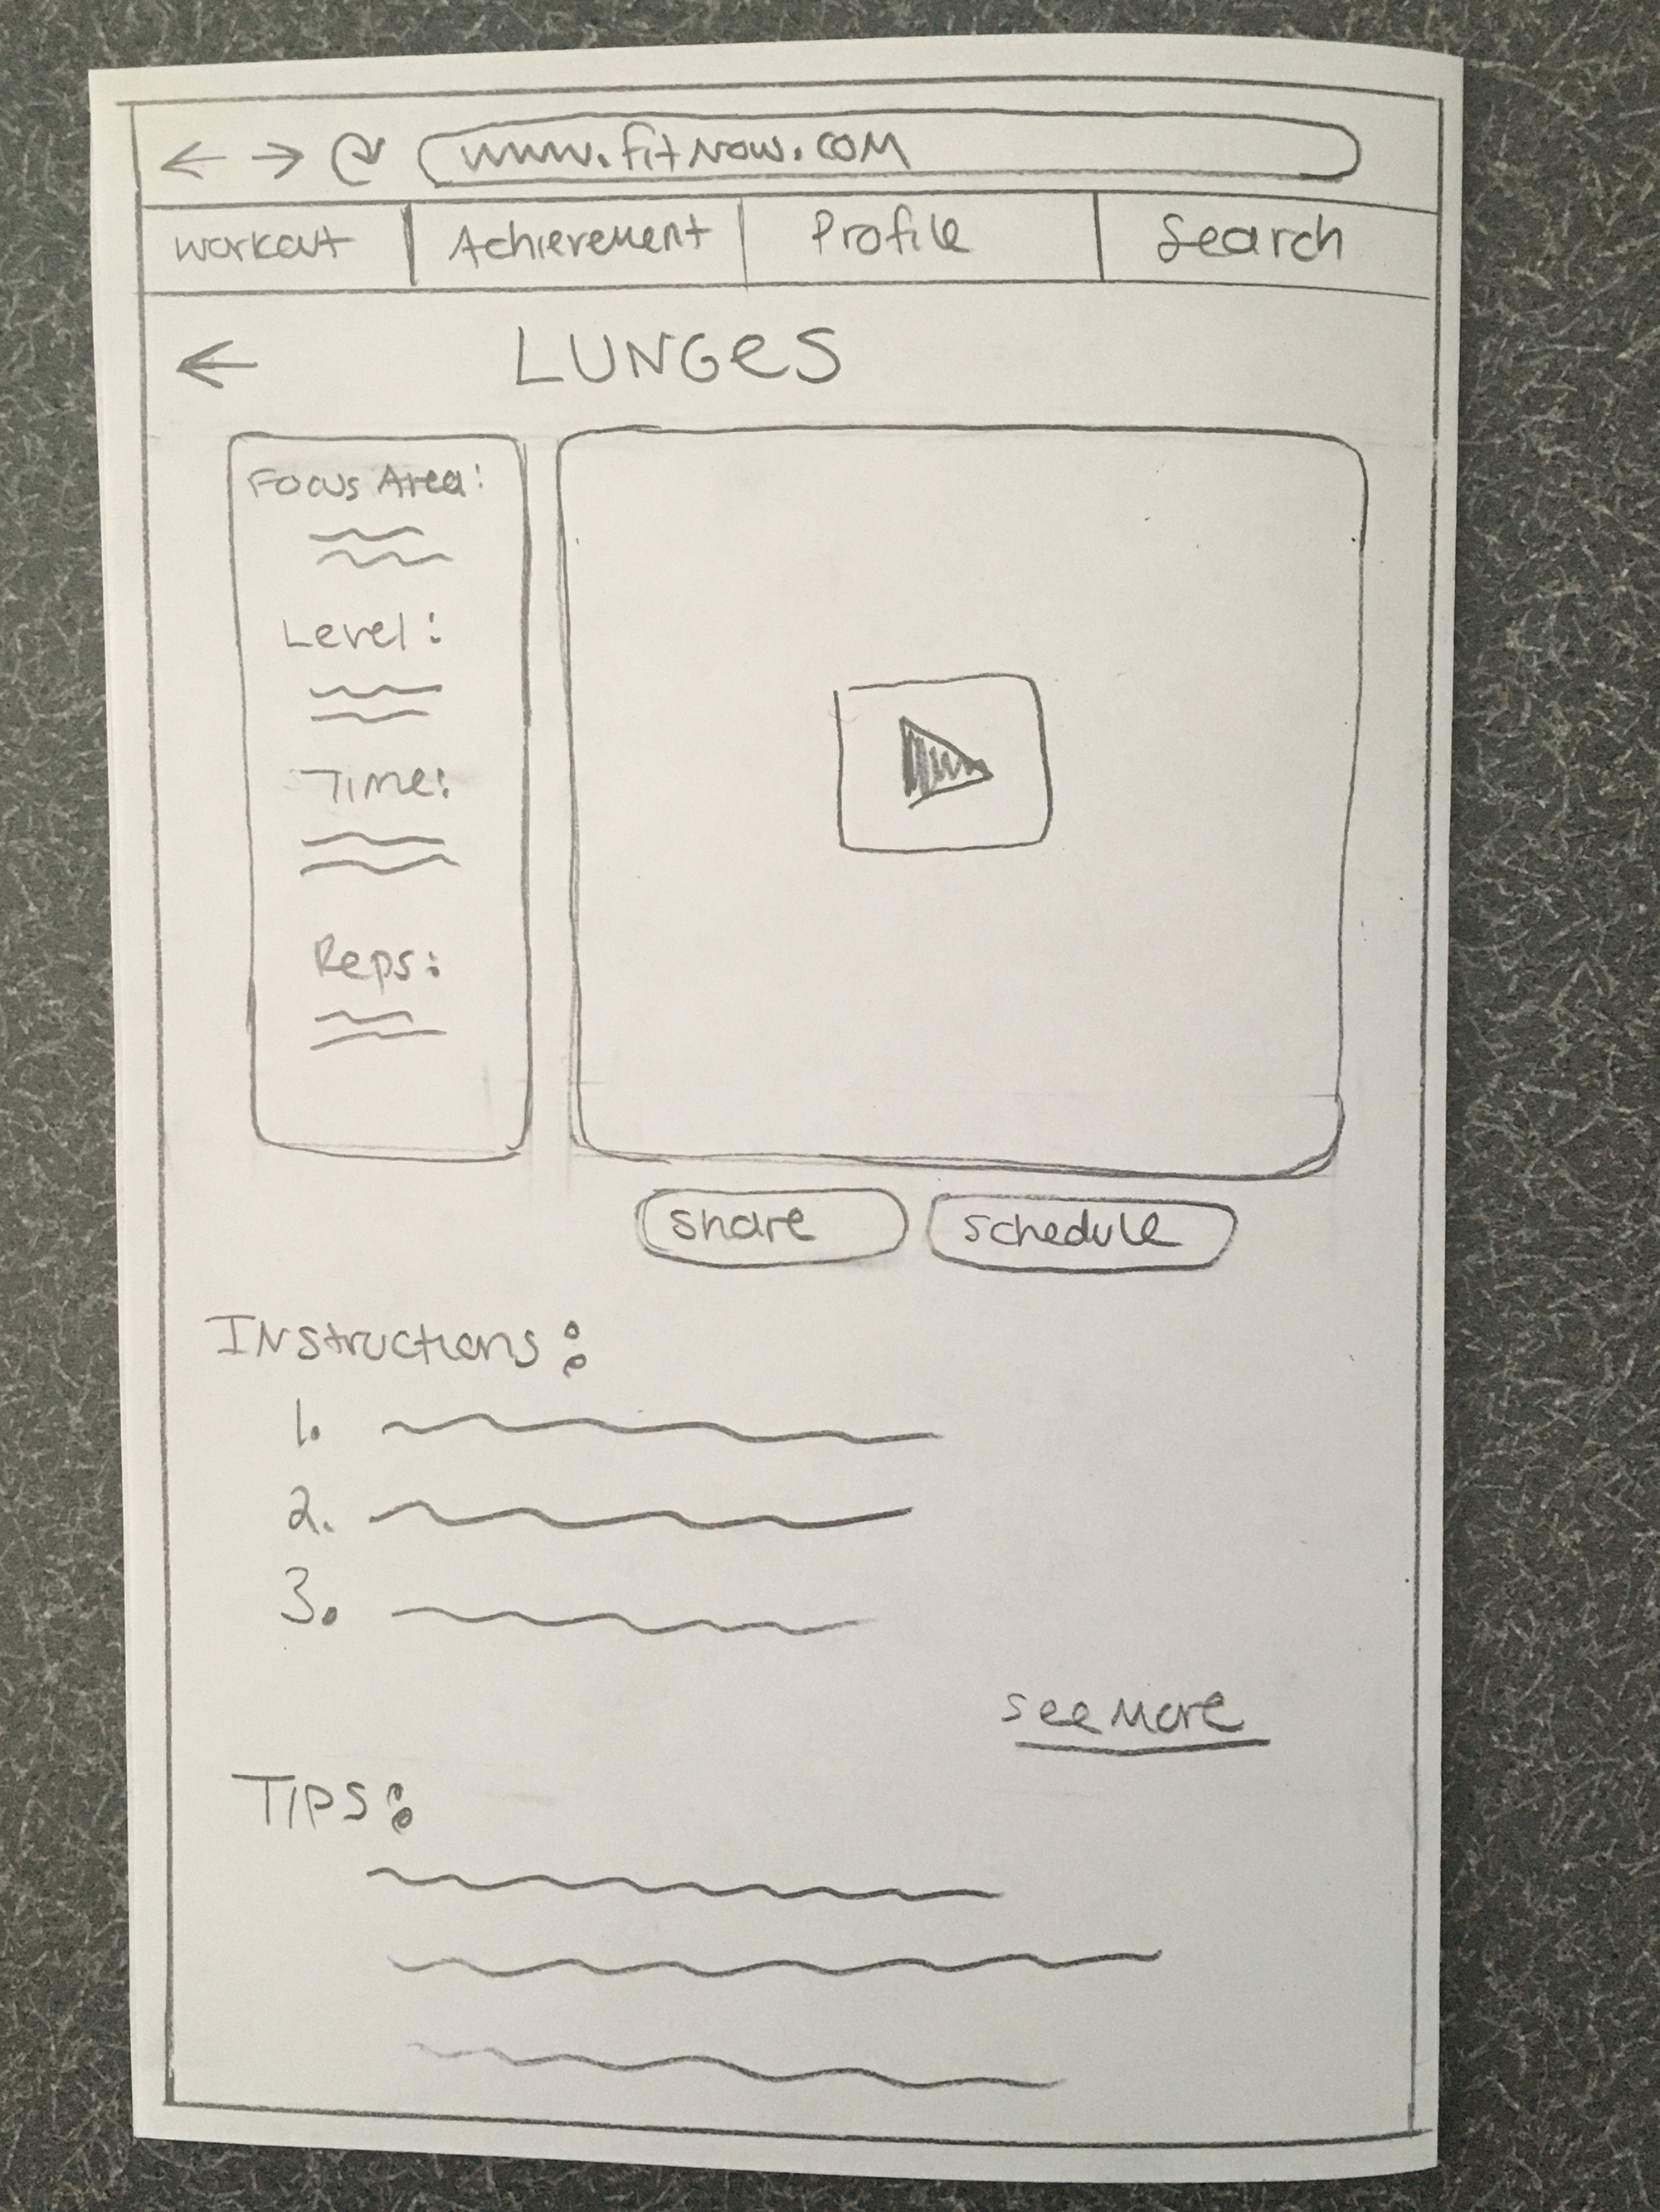 www.fitnow.com
Workout Achievement Profile Search
LUNGES
Focus Area:
Level:
Time:
Reps:
Share Schedule
Instructions:
1.
2.
3.
See More
Tips: